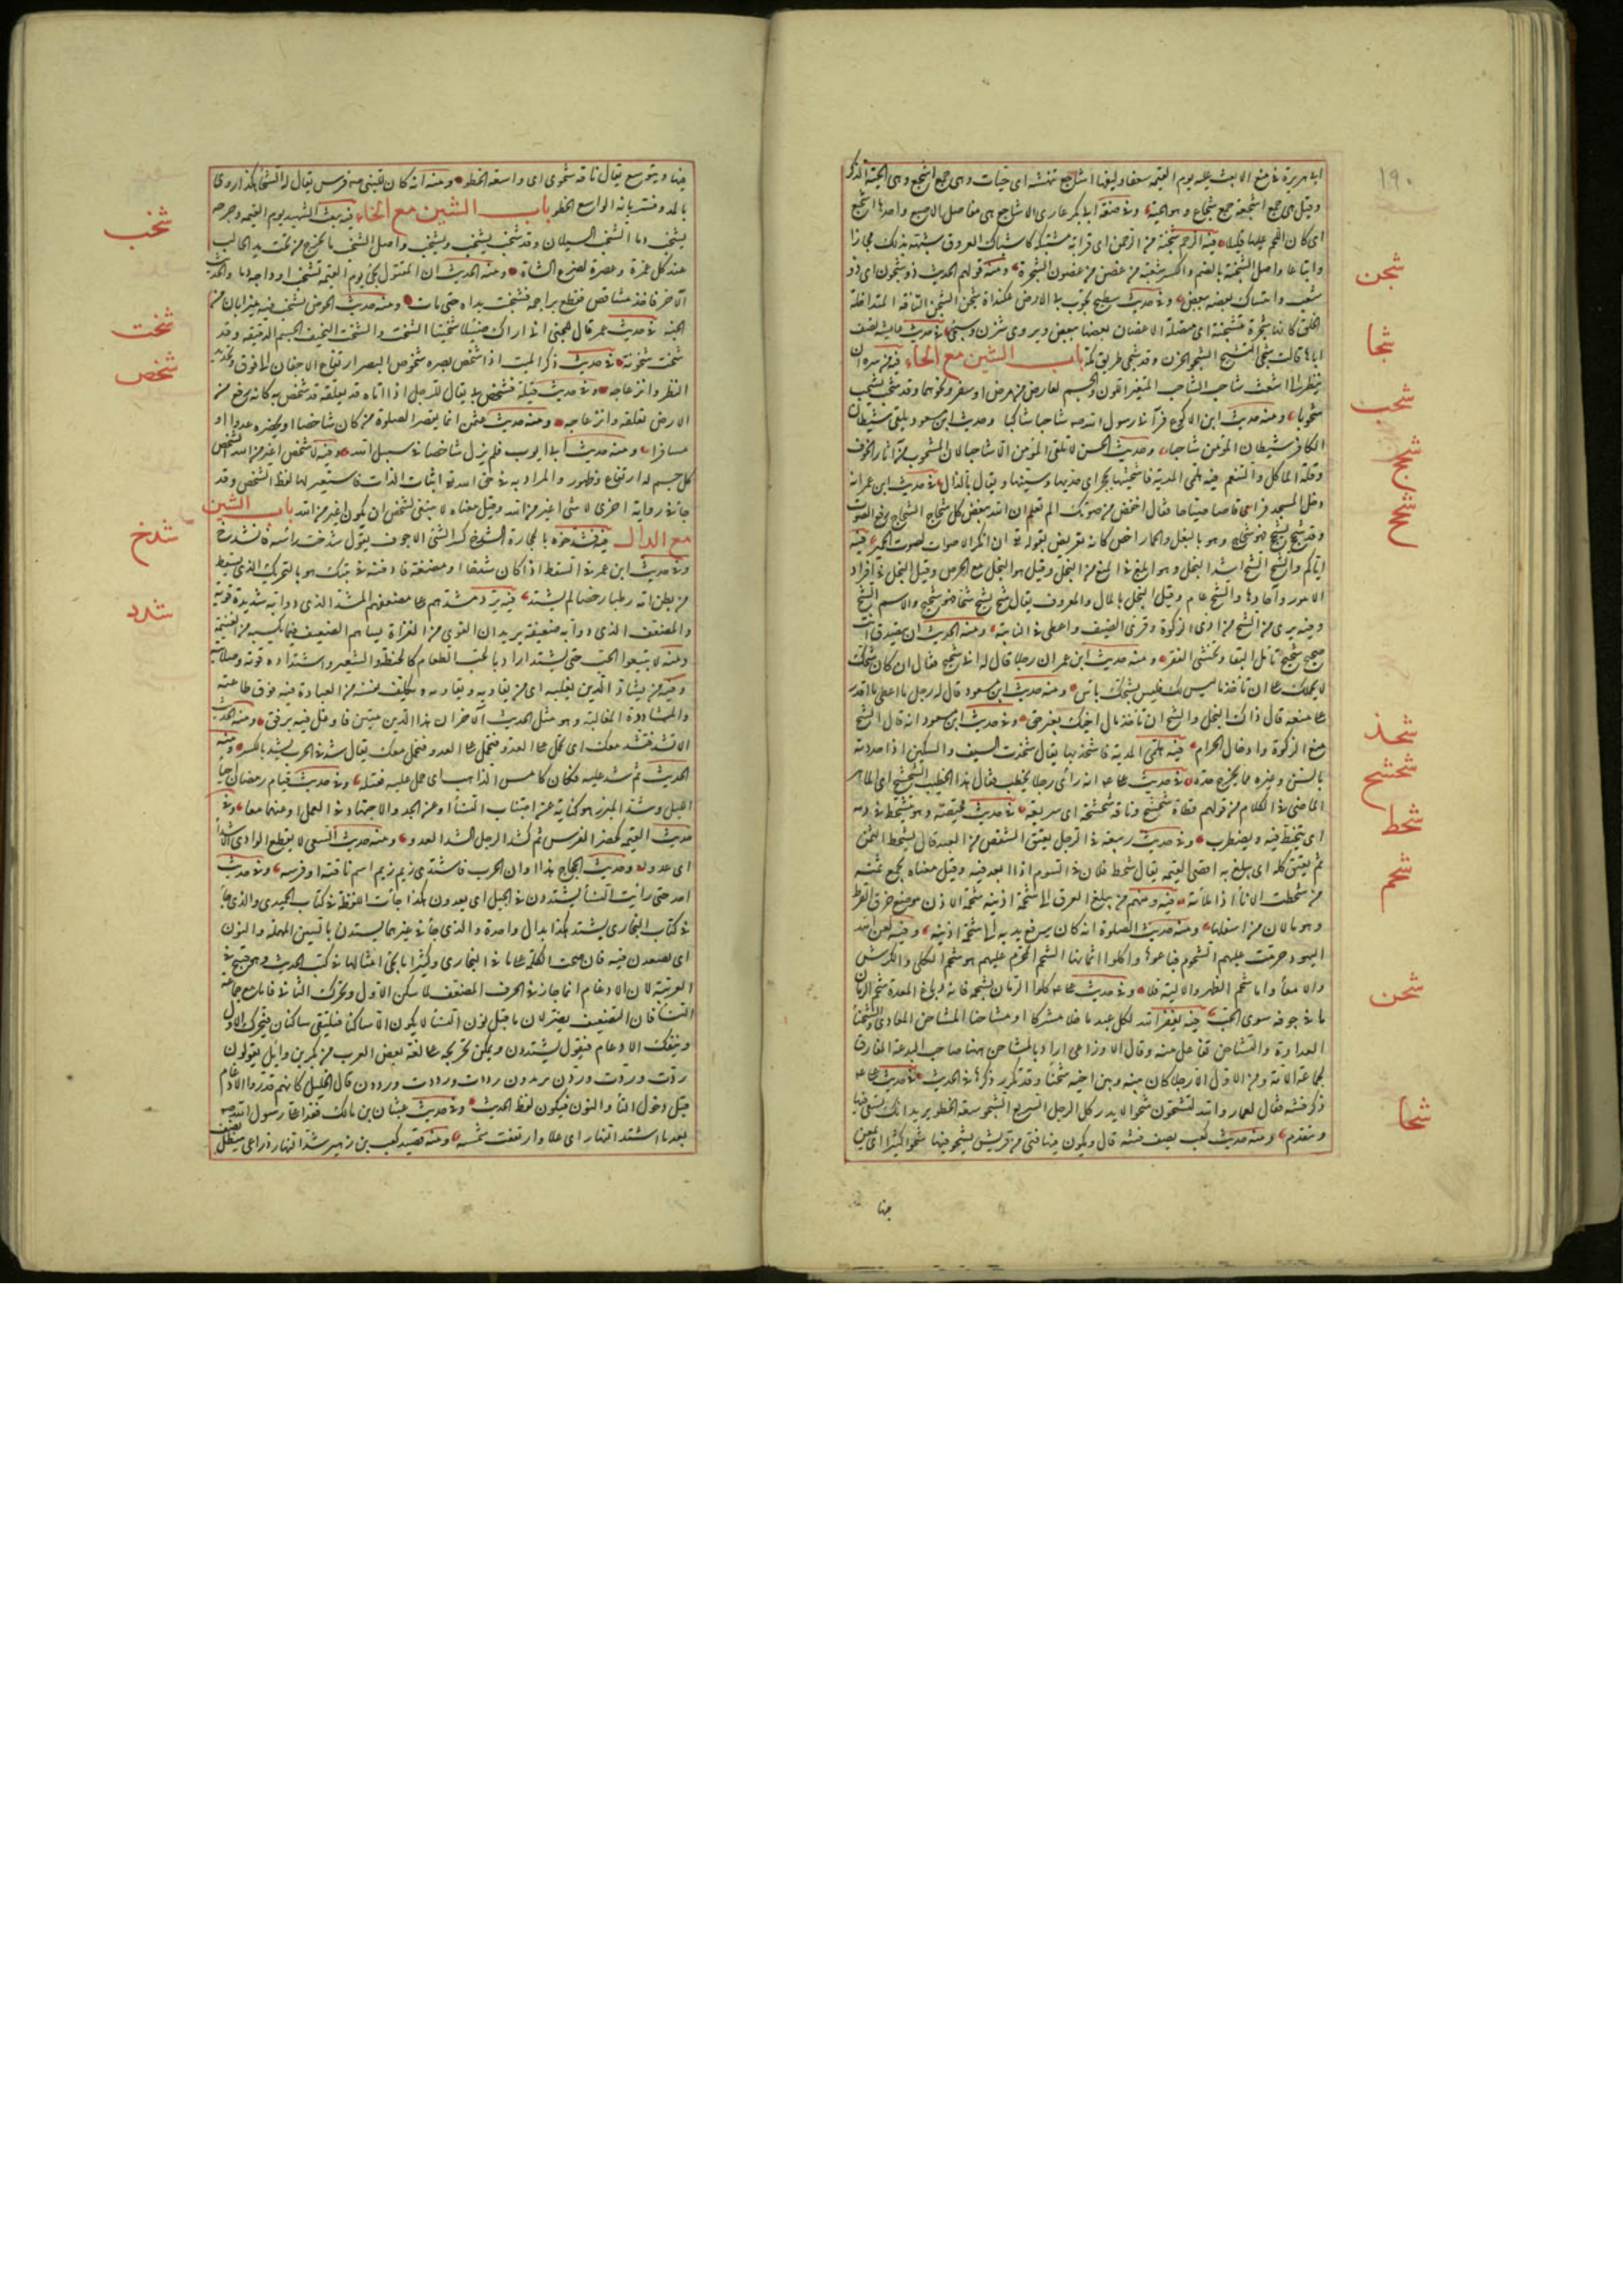 ١٩٠
ابى هريرة فى منع الا بعث عليه يوم القيمة سعفها وليفها اشاجع تنهشه اى حيات وهى جمع اشجع وهى الحية الذكر
وقيل هى جمع اشجعة جمع شجاع وهو الحية وفى صفة ابى بكر عارى الاشاجع هى مفاصل الاصابع واحدها اشجع
اى كان اللحم عليها قليلا فيه الرحم شجنة من الرحمن اى قرابة مشتبكة كاشتباك العروق شبهه بذلك مجازا
شجن
واتساعا واصل الشجنة بالضم والكسر شعبة من غصن من غصون الشجرة ومنه قولهم الحديث ذو شجون اى ذو
شعب وامتساك بعضه ببعض وفى حديث سطيح تجوب بى الارض علنداة شجن الشجن الناقة المتداخلة
الخلق كانها شجرة متشجنة اى متصلة الاغصان بعضها ببعض ويروى شزن وسيجئ فى حديث عايشة تصف
شجا
اباها قالت شجى النشيج الشجو الحزن وقد شجى باب الشين مع الحاء فيه من سره ان
ينظر الى اشعث شاحب الشاحب المتغير اللون والجسم لعارض من مرض او سفر ونحوهما وقد شحب يشحب
شحب
شحوبا ومنه حديث ابن الاكوع فرآنى رسول الله صه شاحبا شاكيا وحديث ابن مسعود يلقى شيطان
الكافر شيطان المؤمن شاحبا وحديث الحسن لا تلقى المؤمن الا شاحبا لان الشحوب من آثار الخوف
وقلة الماكل والتنعم فيه هلمى المدية فاشحثيها بحجر اى حديها وسنيها ويقال بالذال فى حديث ابن عمر انه
شحج
دخل المسجد فراى قاصا صياحا فقال اخفض من صوتك الم تعلم ان الله يبغض كل شحاج الشحاج رفع الصوت
شحح
وقد شحج يشحج فهو شحاج وهو بالبغل والحمار اخص كانه تعريض بقوله تع ان انكر الاصوات لصوت الحمير فيه
اياكم والشح الشح اشد البخل وهو ابلغ فى المنع من البخل وقيل هو البخل مع الحرص وقيل البخل فى افراد
الامور وآحادها والشح عام وقيل البخل بالمال والمعروف يقال شح يشح شحا فهو شحيح والاسم الشح
وفيه برى من الشح من ادى الزكوة وقرى الضيف واعطى فى النائبة ومنه الحديث ان تتصدق وانت
صحيح شحيح تامل البقا وتخشى الفقر ومنه حديث ابن عمر ان رجلا قال له انى شحيح فقال ان كان شحك
لا يحملك على ان تاخذ ما ليس لك فليس بشحك باس ومنه حديث ابن مسعود قال له رجل ما اعطى ما اقدر
على منعه قال ذاك البخل والشح ان تاخذ مال اخيك بغير حق وفى حديث ابن مسعود انه قال الشح
شحذ
منع الزكوة وادخال الحرام فيه هلمى المدية فاشحذيها يقال شحذت السيف والسكين اذا حددته
شحشح
بالمسن وغيره مما يخرج حده فى حديث على عه انه راى رجلا يخطب فقال هذا الخطيب الشحشح اى الماهر
الماضى فى الكلام من قولهم قطاة شحشح وناقة شحشحة اى سريعة فى حديث محيصة وهو يتشحط فى دمه
شحط
اى يتخبط فيه ويضطرب وفى حديث ربيعة فى الرجل يعتق الشقص من العبد قال يشحط الثمن
ثم يعتق كله اى يبلغ به اقصى القيمة يقال شحط فلان فى السوم اذا ابعد فيه وقيل معناه يجمع ثمنه
شحم
من شحطت الاناء اذا ملأته فيه ومنهم من يبلغ العرق الى شحمة اذنيه شحمة الاذن موضع خرق القرط
وهو ما لان من اسفلها ومنه حديث الصلوة انه كان يرفع يديه الى شحمة اذنيه وفيه لعن الله
اليهود حرمت عليهم الشحوم فباعوها واكلوا اثمانها الشحم المحرم عليهم هو شحم الكلى والكرش
والامعا واما شحم الظهر والالية فلا وفى حديث على عه كلوا الرمان بشحمه فانه دباغ المعدة شحم الرمان
شحن
ما فى جوفه سوى الحب فيه يغفر الله لكل عبد ما خلا مشركا او مشاحنا المشاحن المعادى والشحناء
العداوة والتشاحن تفاعل منه وقال الاوزاعى اراد بالمشاحن ههنا صاحب البدعة المفارق
لجماعة الامة ومن الاول الا رجلا كان بينه وبين اخيه شحناء وقد تكرر ذكرها فى الحديث فى حديث على عه
شحا
ذكر فتنة فقال لعمار والله لتشحون فيها شحوا لا يدركك الرجل السريع الشحو سعة الخطو يريد انك تسعى فيها
وتتقدم ومنه حديث كعب يصف فتنة قال ويكون فيها فتى من قريش يشحو فيها شحوا كثيرا اى يمعن
فيها
فيها ويتوسع يقال ناقة شحوى اى واسعة الخطو ومنه انه كان للنبى صه فرس يقال له الشحا هكذا روى
بالمد وفسر بانه الواسع الخطو باب الشين مع الخاء فيه يبعث الشهيد يوم القيمة وجرحه
شخب
يشخب دما الشخب السيلان وقد شخب يشخب ويشخب واصل الشخب ما يخرج من تحت يد الحالب
عند كل غمزة وعصرة لضرع الشاة ومنه الحديث ان المقتول يجئ يوم القيمة تشخب اوداجه دما والحديث
الآخر فاخذ مشاقص فقطع براجمه فشخبت يداه حتى مات ومنه حديث الحوض يشخب فيه ميزابان من
شخت
الجنة فى حديث عمر قال للجنى انى اراك ضئيلا شخيتا الشخت والشخيت النحيف الجسم الدقيقه وقد
شخص
شخت شخوتة فى حديث ذكر الميت اذا شخص بصره شخوص البصر ارتفاع الاجفان الى فوق وتحديد
النظر وانزعاجه وفى حديث قيلة فشخص بى يقال للرجل اذا اتاه ما يقلقه قد شخص به كانه رفع من
الارض لقلقه وانزعاجه ومنه حديث عثمن انما يقصر الصلوة من كان شاخصا او بحضرة عدو اى
مسافرا ومنه حديث ابى ايوب فلم يزل شاخصا فى سبيل الله وفيه لا شخص اغير من الله الشخص
كل جسم له ارتفاع وظهور والمراد به فى حق الله تع اثبات الذات فاستعير لها لفظ الشخص وقد
جا فى رواية اخرى لا شئ اغير من الله وقيل معناه لا ينبغى لشخص ان يكون اغير من الله باب الشين
شدخ
مع الدال فيه فشدخوه بالحجارة الشدخ كسر الشئ الاجوف يقول شدخت رأسه فانشدخ
وفى حديث ابن عمر فى السقط اذا كان شدخا او مضغة فادفنه فى بيتك هو بالتحريك الذى يسقط
شدد
من بطن امه رطبا رخصا لم يشتد فيه يرد مشدهم على مضعفهم المشد الذى دوابه شديدة قوية
والمضعف الذى دوابه ضعيفة يريد ان القوى من الغزاة يساهم الضعيف فيما يكسبه من الغنيمة
ومنه لا تبيعوا الحب حتى يشتد اراد بالحب الطعام كالحنطة والشعير واشتداده قوته وصلابته
وفيه من يشاد الدين يغلبه اى من يقاويه ويقاومه ويكلف نفسه من العبادة فيه فوق طاقته
والمشاددة المغالبة وهو مثل الحديث الآخر ان هذا الدين متين فاوغل فيه برفق ومنه الحديث
الا تشد فنشد معك اى تحمل على العدو فنحمل على العدو فنحمل معك يقال شد فى الحرب يشد بالكسر ومنه
الحديث ثم شد عليه فكان كامس الذاهب اى حمل عليه فقتله وفى حديث قيام رمضان احيا
الليل وشد المئزر هو كناية عن اجتناب النساء او عن الجد والاجتهاد فى العمل او عنهما معا وفى
حديث القيمة كحضر الفرس ثم كشد الرجل الشد العدو ومنه حديث السعى لا يقطع الوادى الا شدا
اى عدوا وحديث الحجاج هذا اوان الحرب فاشتدى زيم زيم اسم ناقته او فرسه وفى حديث
احد حتى رايت النساء يشتددن فى الجبل اى يعدون هكذا جات اللفظة فى كتاب الحميدى والذى جا
فى كتاب البخارى يشتدن هكذا بدال واحدة والذى جا فى غيرهما يسندن بالسين المهملة والنون
اى يصعدن فيه فان صحت الكلمة على ما فى البخارى وكثيرا ما يجئ امثالها فى كتب الحديث وهو قبيح فى
العربية لان الادغام انما جاز فى الحرف المضعف لما سكن الاول وتحرك الثانى فاما مع جماعة
النساء فان التضعيف يظهر لان ما قبل نون النساء لا يكون الا ساكنا فيلتقى ساكنان فيحرك الاول
وينفك الادغام فيقول يشتددن ويمكن تخريجه على لغة بعض العرب من بكر بن وايل يقولون
ردت وردت وردن يريدون رددت ورددت ورددن قال الخليل كانهم قدروا الادغام
قبل دخول التا والنون فيكون لفظ الحديث وفى حديث عتبان بن مالك فغدا على رسول الله صه
بعد ما اشتد النهار اى علا وارتفعت شمسه ومنه قصيد كعب بن زهير شد النهار ذراعى عيطل نصف